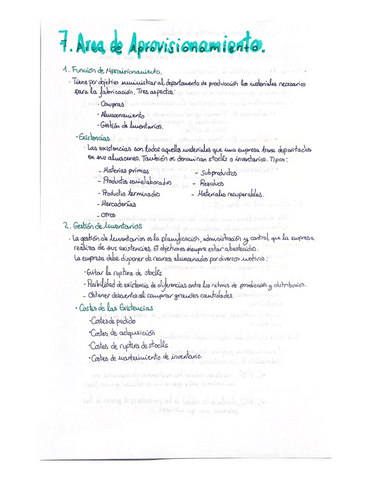 7. Area de Aprovisionamiento.
1. Función de Aprovisionamiento.
· Tiene por objetivo suministrar al departamento de producción los materiales necesarios
para la fabricación. Tres aspectos:
- Compras
- Almacenamiento
- Gestión de Inventarios.
· Existencias
· Las existencias son todos aquellos materiales que una empresa tiene depositados
en sus almacenes. También se denominan stocks o inventarios. Tipos:
- Materias primas
- Subproductos
- Productos semielaborados
- Residuos
- Productos terminados
- Materiales recuperables.
- Mercaderías
- Otros
2. Gestión de Inventarios
· La gestión de Inventarios es la planificación, administración y control que la empresa
realiza de sus existencias. El objetivo es siempre estar abastecido.
La empresa debe disponer de recursos almacenados por diversos motivos:
- Evitar la ruptura de stocks
- Posibilidad de existencia de diferencias entre los ritmos de producción y distribución.
- Obtener descuento al comprar grandes cantidades.
· Costes de las Existencias
· Costes de pedido
· Costes de adquisición
· Costes de ruptura de stocks
· Costes de mantenimiento de inventario.